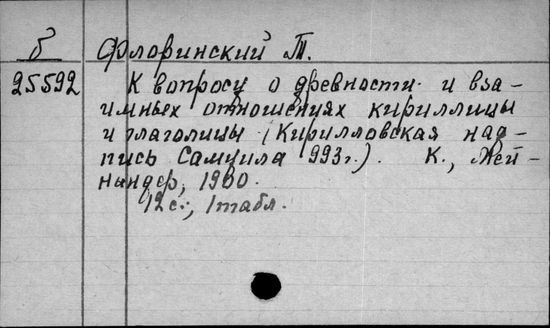 б Флоринский Т.
25592 К вопросу о древности и вза-
имных отношениях кириллицы
и глаголицы (Кирилловская над-
пись Самуила 993г.). К., Мей-
нандер, 1900.
12с., 1табл.